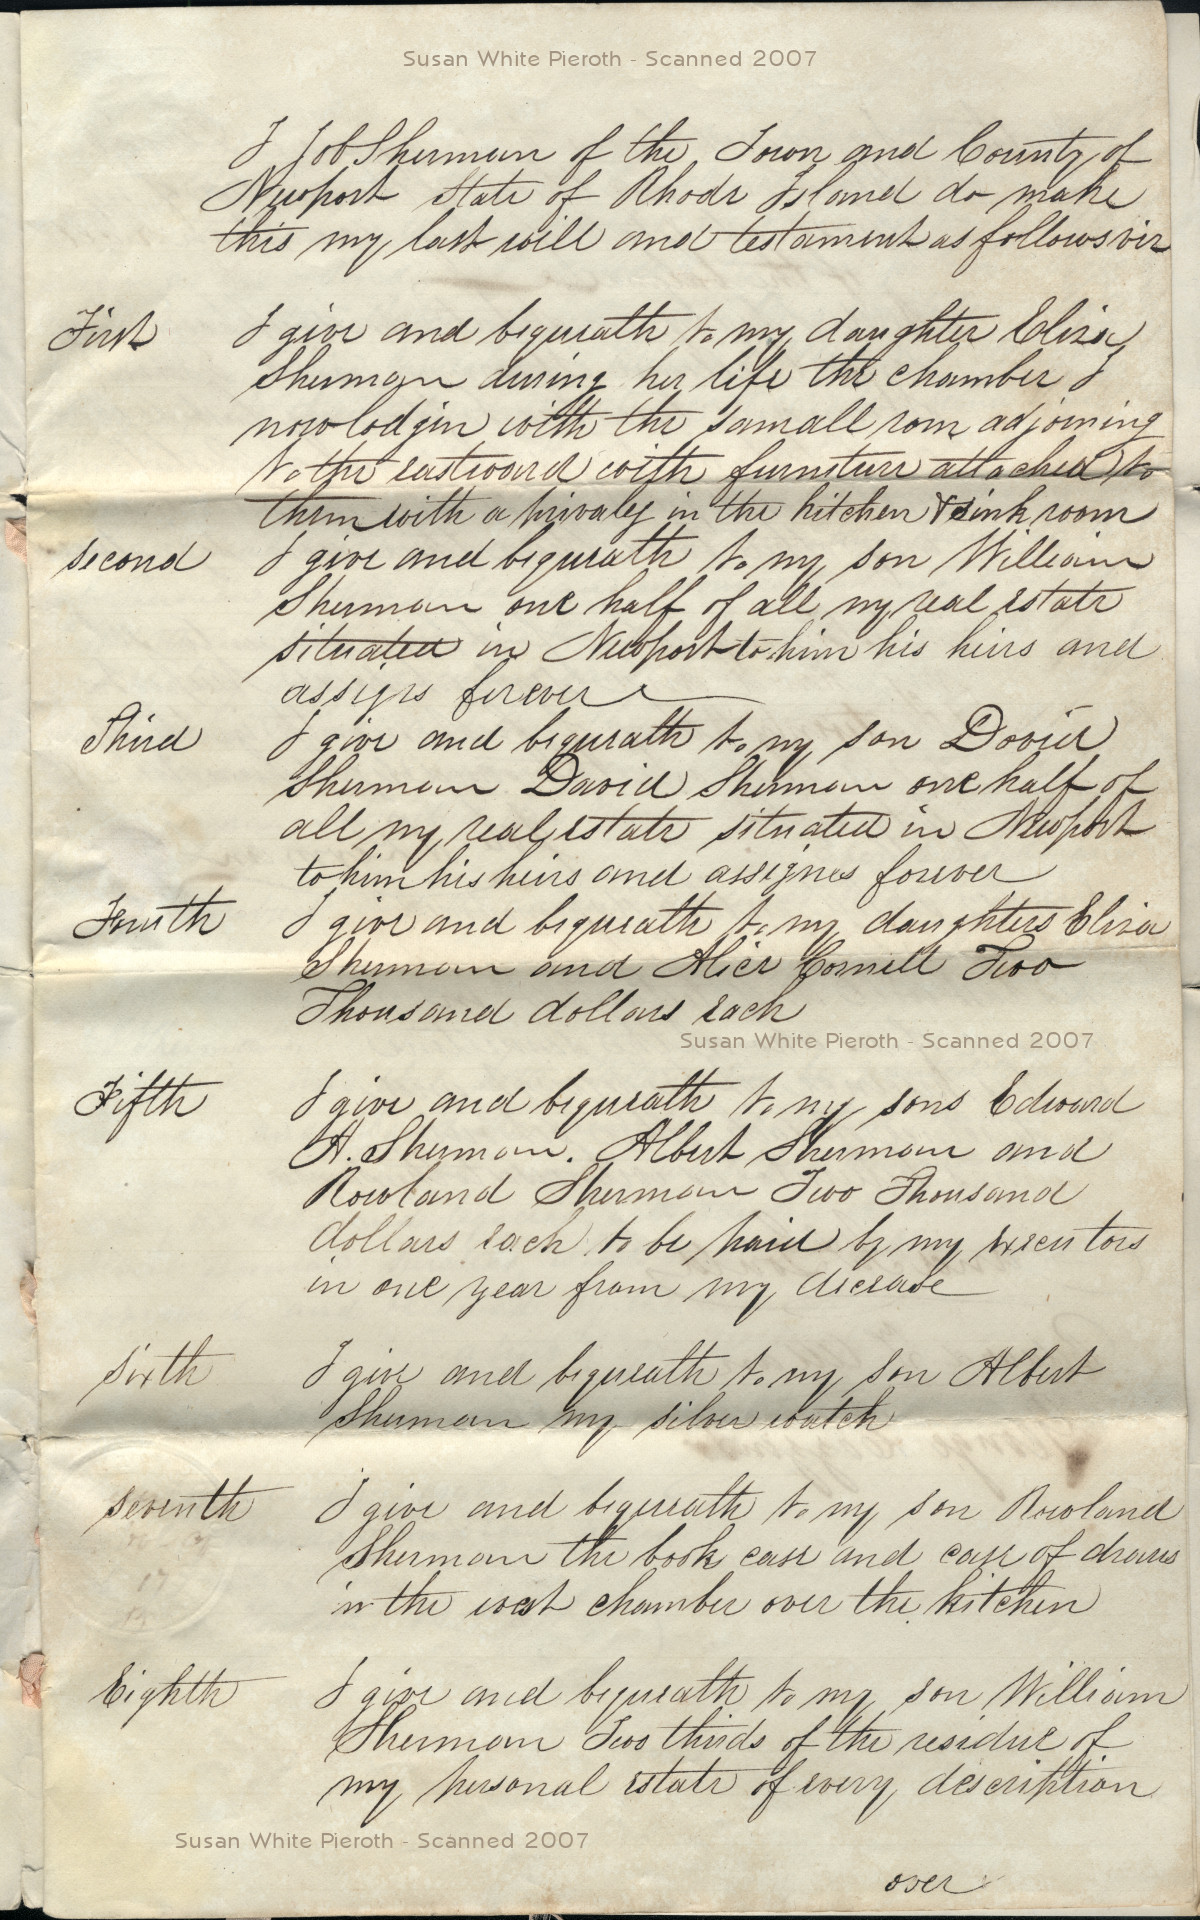 Susan White Pieroth - Scanned 2007
I Job Sherman of the Town and County of
Newport State of Rhode Island do make
this my last will and testament as follows viz
First I give and bequeath to my daughter Eliza
Sherman during her life the chamber I
now lodgin with the samall rom adjoining
to the eastward with furniture attached to
them with a privaleg in the kitchen & sink room
second I give and bequeath to my son William
Sherman one half of all my real estate
situated in Newport to him his heirs and
assigns forever
Third I give and bequeath to my son David
Sherman David Sherman one half of
all my real estate situated in Newport
to him his heirs and assignes forever
Fourth I give and bequeath to my daughters Eliza
Sherman and Alice Cornell Two
Thousand dollars each
Susan White Pieroth - Scanned 2007
Fifth I give and bequeath to my sons Edward
A. Sherman. Albert Sherman and
Rowland Sherman Two Thousand
dollars each to be paid by my executors
in one year from my decease
sixth I give and bequeath to my son Albert
Sherman my silver watch
seventh I give and bequeath to my son Rowland
Sherman the book case and case of draws
in the west chamber over the kitchen
Eighth I give and bequeath to my son William
Sherman Two thirds of the residue of
my personal estate of every description
Susan White Pieroth - Scanned 2007
over